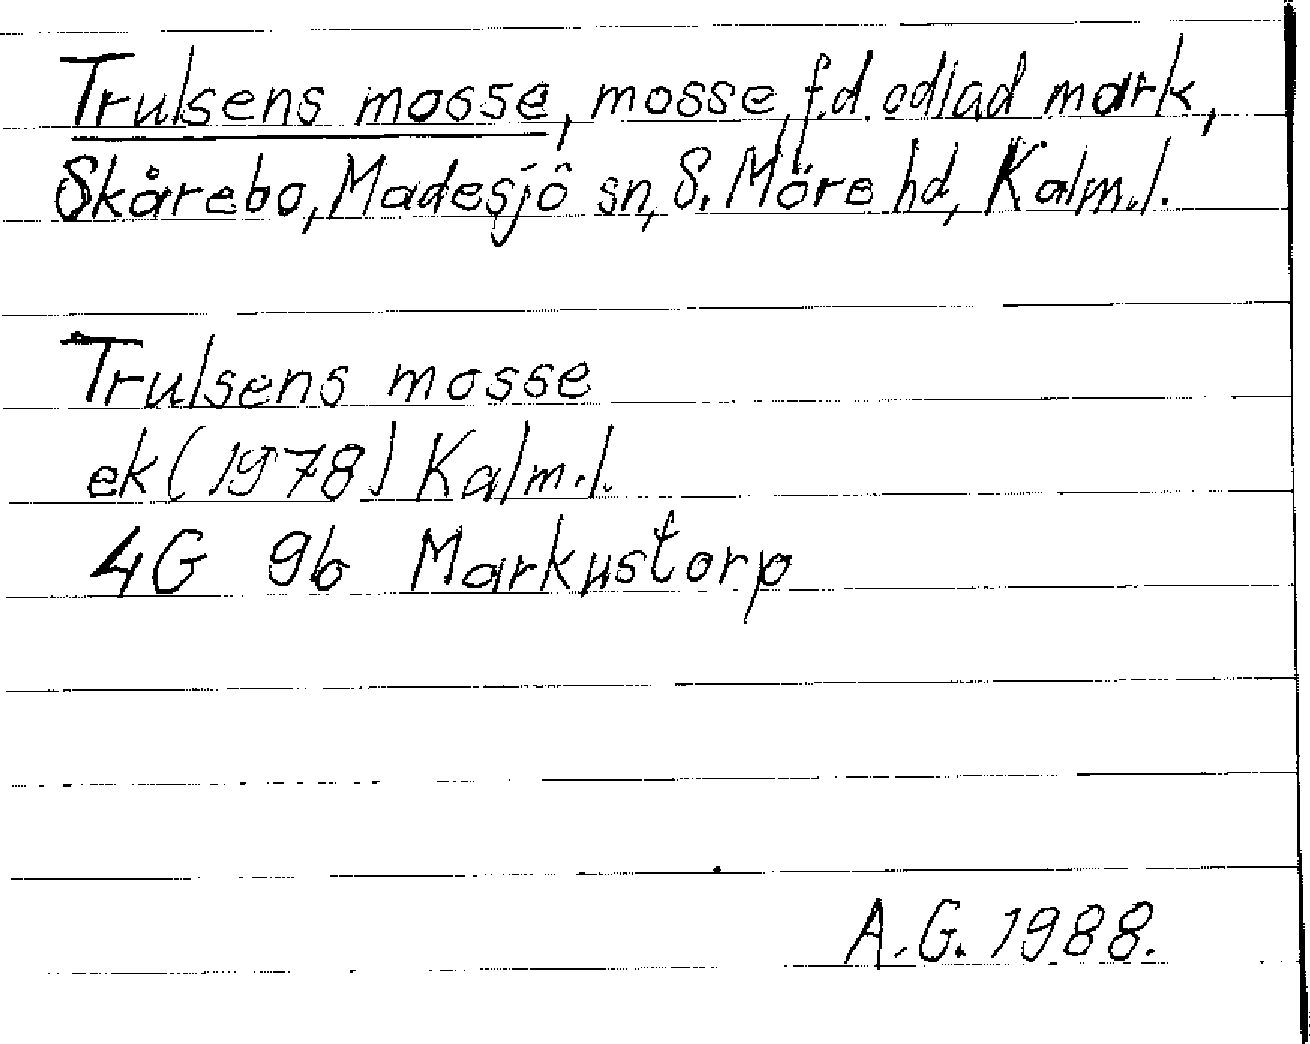 Trulsens mosse, mosse, f.d. odlad mark,
Skårebo, Madesjö sn, S. Möre hd, Kalm.l.
Trulsens mosse
ek (1978) Kalm.l.
4G 9b Markustorp
A.G. 1988.